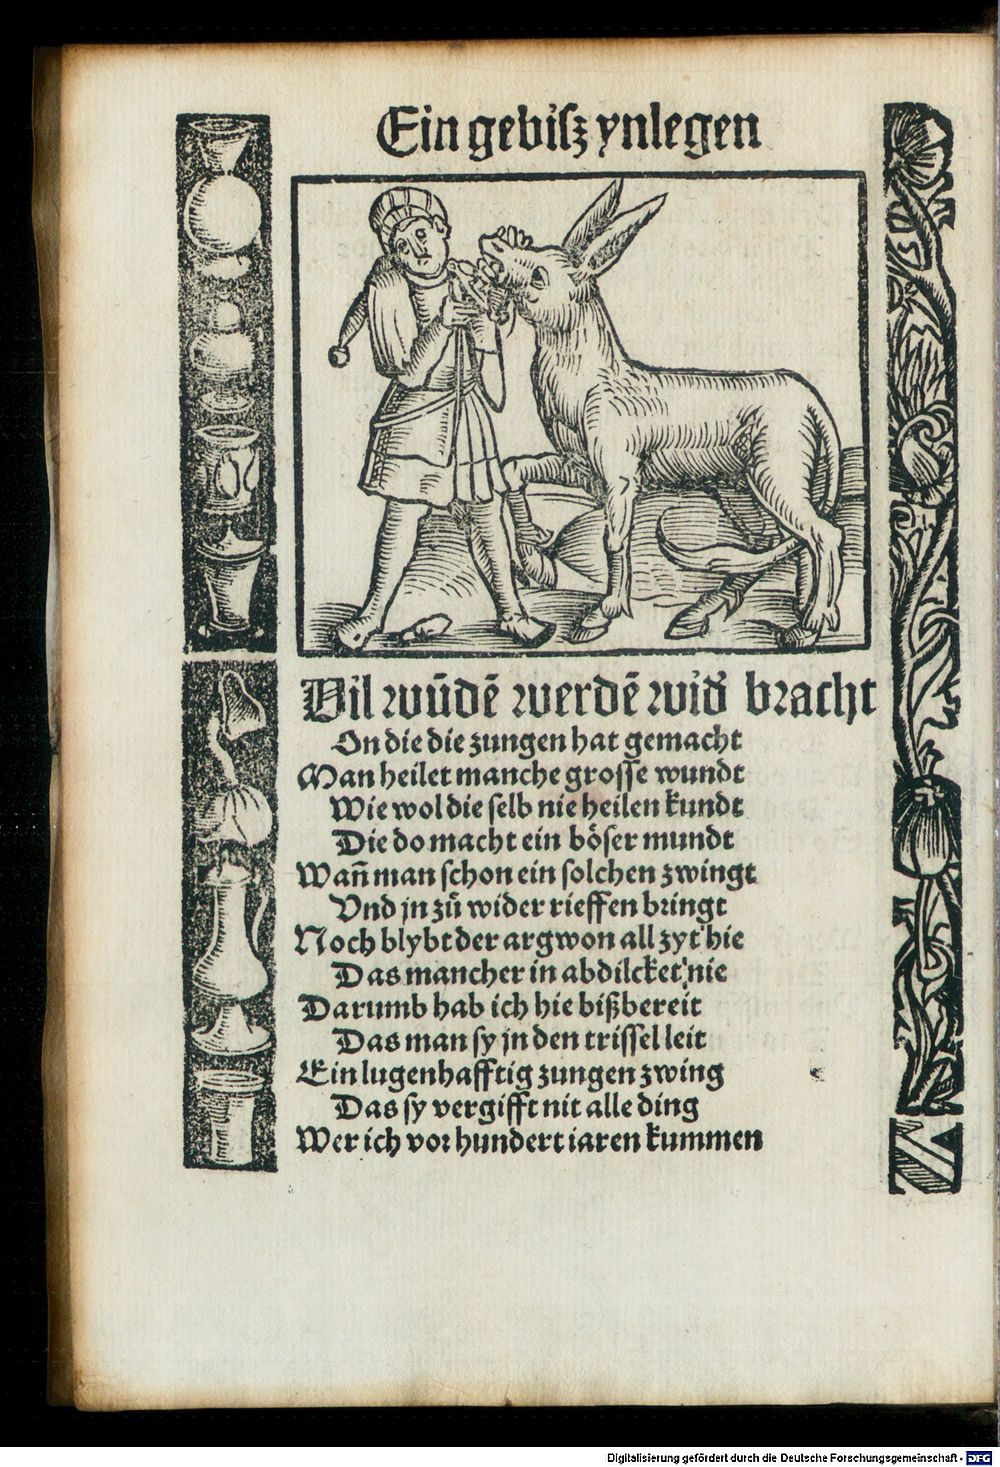 Ein gebisz ynlegen
Vil wūdē werdē wid̄ bracht
On die die zungen hat gemacht
Man heilet manche grosse wundt
Wie wol die selb nie heilen kundt
Die do macht ein böser mundt
Wañ man schon ein solchen zwingt
Vnd jn zů wider rieffen bringt
Noch blybt der argwon all zyt hie
Das mancher in abdilcket nie
Darumb hab ich hie biß bereit
Das man sy jn den trissel leit
Ein lugenhafftig zungen zwing
Das sy vergifft nit alle ding
Wer ich vor hundert iaren kummen
Digitalisierung gefördert durch die Deutsche Forschungsgemeinschaft - DFG